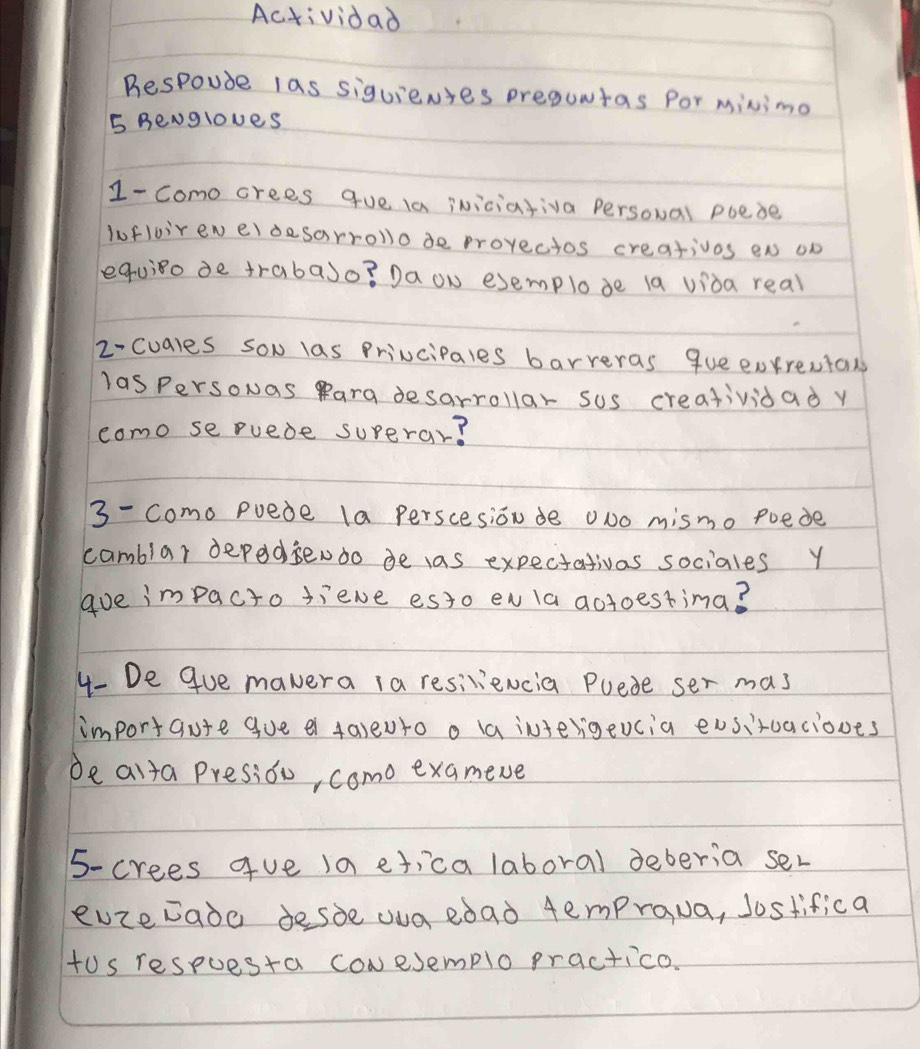 Actividad
Responde las siguientes preguntas Por Minimo
5 Renglones
1- Como crees que la iniciativa Personal puede
influir en el desarrollo de proyectos creativos en un
equipo de trabajo? Da un ejemplo de la vida real
2- Cuales son las Principales barreras que enfrentan
las Personas Para desarrollar sus creatividad y
como se puede superar?
3- Como puede la Perscesión de uno mismo Puede
cambiar depediendo de las expectativas sociales y
que impacto tiene esto en la autoestima?
4- De que manera la resiliencia Puede ser mas
importante que el talento o la inteligencia en situaciones
De alta Presión, como examene
5- crees que la etica laboral deberia ser
enzeñada desde una edad temprana, Justifica
tus respuesta con ejemplo practico.